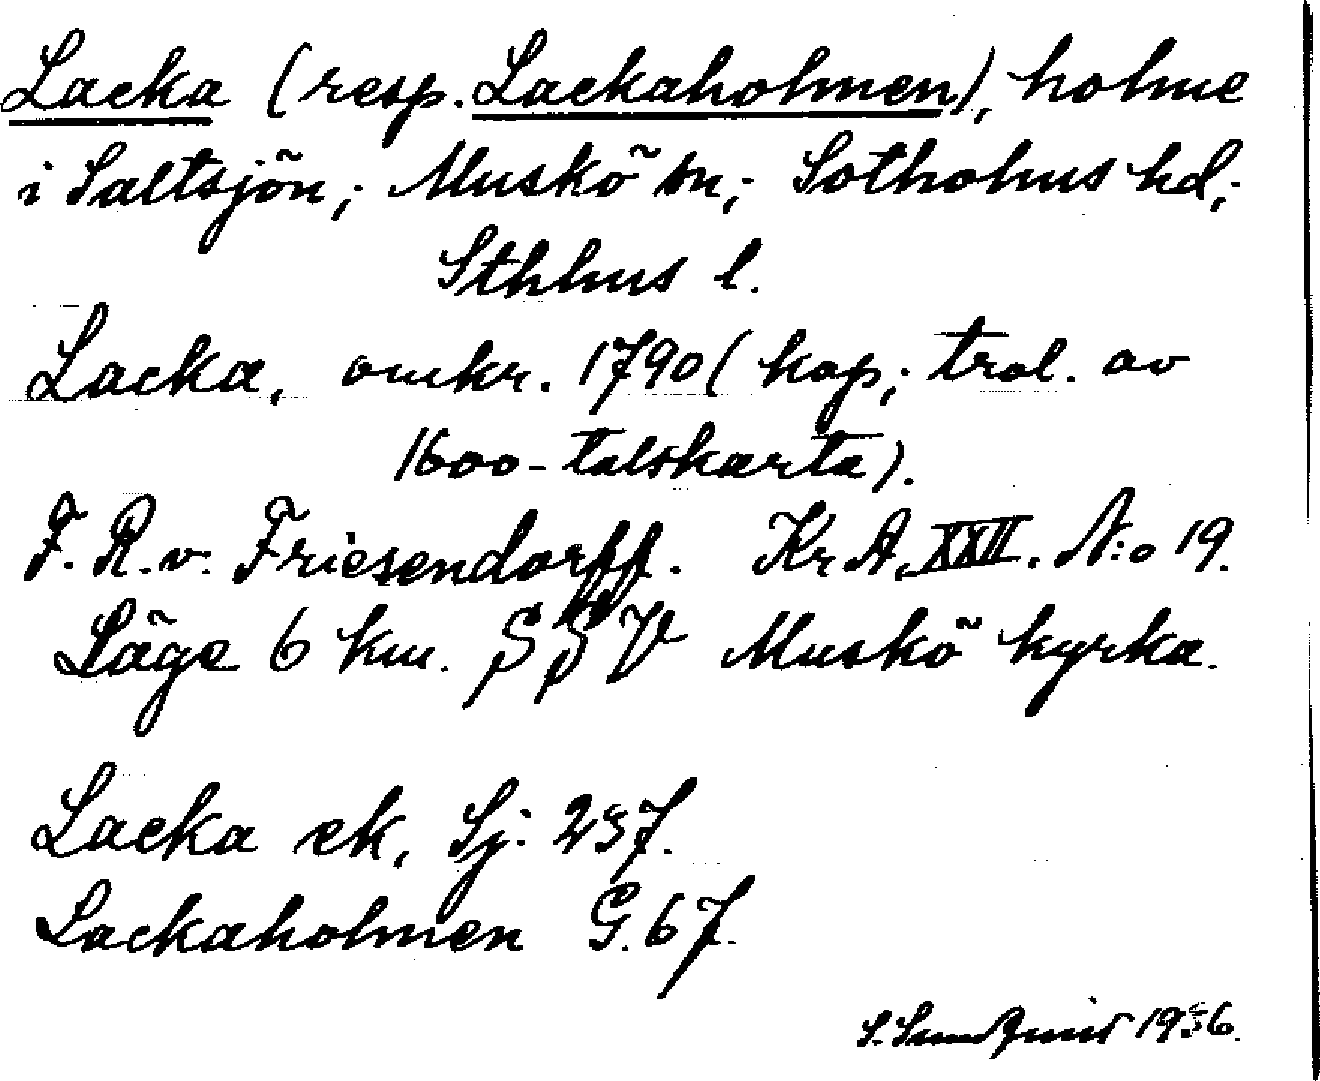 Lacka (resp. Lackaholmen), holme
i Saltsjön; Muskö sn; Sotholms hd;
Sthlms l.
Lacka, omkr. 1790 (kop; trol. av
1600-talskarta).
F. R. v. Friesendorff. Kr. A. XXII. N:o 19.
Läge 6 km. SSV Muskö kyrka.
Lacka ek, Sj. 257.
Lackaholmen G. 67.
S. Sundquist 1956.